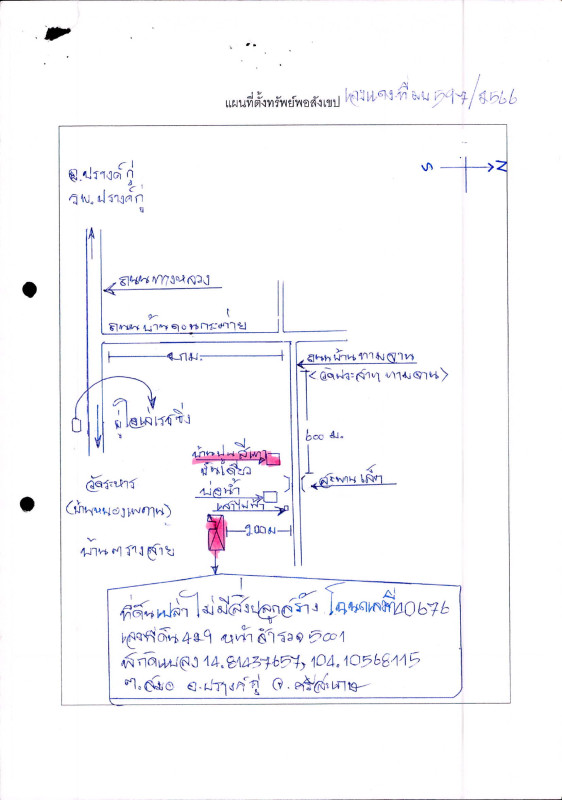 แผนที่ตั้งทรัพย์พอสังเขป หมายแดงที่ ผบ 597/2566
S N
อ.ปรางค์กู่
รพ.ปรางค์กู่
ถนนทางหลวง
ถนนบ้านดอนกระต่าย
1 กม.
ถนนบ้านทามจาน
<วัดปราสาททามจาน>
อู่ไอเล่เรซซิ่ง
600 ม.
บ้านปูนสีเทา
ชั้นเดียว
สะพานเล็ก
บ่อน้ำ
เสาไฟฟ้า
วัดระหาร
(บ้านหนองเพดาน)
200 ม
บ้านตรางสาย
ที่ดินเปล่า ไม่มีสิ่งปลูกสร้าง โฉนดเลขที่ 40676
เลขที่ดิน 429 หน้าสำรวจ 5001
พิกัดแปลง 14.81437657, 104.10568115
ต.สมอ อ.ปรางค์กู่ จ.ศรีสะเกษ